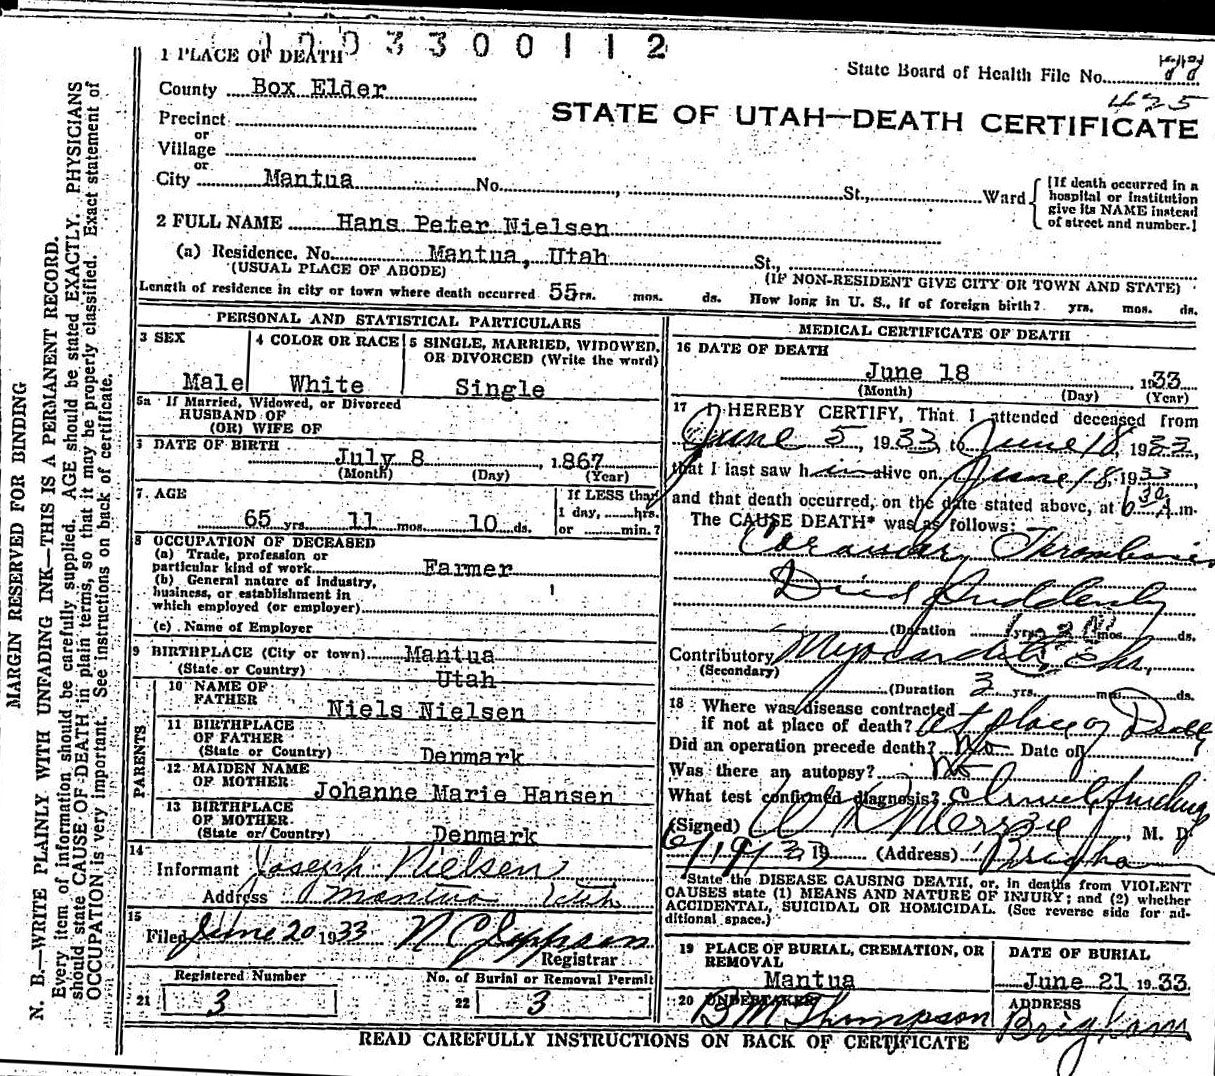 1003300112
1 PLACE OF DEATH
State Board of Health File No.
425
County Box Elder
STATE OF UTAH—DEATH CERTIFICATE
Precinct
or
Village
or
City Mantua No. St., Ward
[If death occurred in a
hospital or institution
give its NAME instead
of street and number.]
2 FULL NAME Hans Peter Nielsen
(a) Residence. No. Mantua, Utah St.,
(USUAL PLACE OF ABODE)
(IF NON-RESIDENT GIVE CITY OR TOWN AND STATE)
Length of residence in city or town where death occurred 55rs. mos. ds. How long in U. S., if of foreign birth? yrs. mos. ds.
PERSONAL AND STATISTICAL PARTICULARS
3 SEX
Male
4 COLOR OR RACE
White
5 SINGLE, MARRIED, WIDOWED,
OR DIVORCED (Write the word)
Single
5a If Married, Widowed, or Divorced
HUSBAND OF
(OR) WIFE OF
DATE OF BIRTH
July 8, 1867
(Month) (Day) (Year)
7. AGE
65 yrs. 11 mos. 10 ds.
If LESS than
1 day, hrs.
or min.?
8 OCCUPATION OF DECEASED
(a) Trade, profession or
particular kind of work Farmer
(b) General nature of industry,
business, or establishment in
which employed (or employer)
(c) Name of Employer
9 BIRTHPLACE (City or town) Mantua
(State or Country) Utah
PARENTS
10 NAME OF
FATHER
Niels Nielsen
11 BIRTHPLACE
OF FATHER
(State or Country) Denmark
12 MAIDEN NAME
OF MOTHER Johanne Marie Hansen
13 BIRTHPLACE
OF MOTHER
(State or Country) Denmark
14
Informant Joseph Nielsen
Address Mantua Utah
15
Filed June 20 1933 N C Jeppson
Registrar
Registered Number
21 3
No. of Burial or Removal Permit
22 3
MEDICAL CERTIFICATE OF DEATH
16 DATE OF DEATH
June 18 1933
(Month) (Day) (Year)
17 I HEREBY CERTIFY, That I attended deceased from
June 5, 1933, to June 18, 1933,
that I last saw him alive on June 18, 1933,
and that death occurred, on the date stated above, at 6 30 A.m.
The CAUSE DEATH* was as follows:
Thrombosis
Died Suddenly
(Duration yrs. mos. ds.
Contributory Myocarditis
(Secondary)
(Duration 3 yrs. mos. ds.
18 Where was disease contracted
if not at place of death? At place of Death
Did an operation precede death? No Date of
Was there an autopsy? No
What test confirmed diagnosis?
(Signed) W R Merrell, M. D.
19 (Address) Brigham
State the DISEASE CAUSING DEATH, or, in deaths from VIOLENT
CAUSES state (1) MEANS AND NATURE OF INJURY; and (2) whether
ACCIDENTAL, SUICIDAL OR HOMICIDAL. (See reverse side for ad-
ditional space.)
19 PLACE OF BURIAL, CREMATION, OR
REMOVAL
Mantua
DATE OF BURIAL
June 21 1933.
20 UNDERTAKER
B M Thompson
ADDRESS
Brigham
READ CAREFULLY INSTRUCTIONS ON BACK OF CERTIFICATE
MARGIN RESERVED FOR BINDING
N. B.—WRITE PLAINLY WITH UNFADING INK—THIS IS A PERMANENT RECORD.
Every item of information should be carefully supplied. AGE should be stated EXACTLY. PHYSICIANS
should state CAUSE OF DEATH in plain terms, so that it may be properly classified. Exact statement of
OCCUPATION is very important. See instructions on back of certificate.